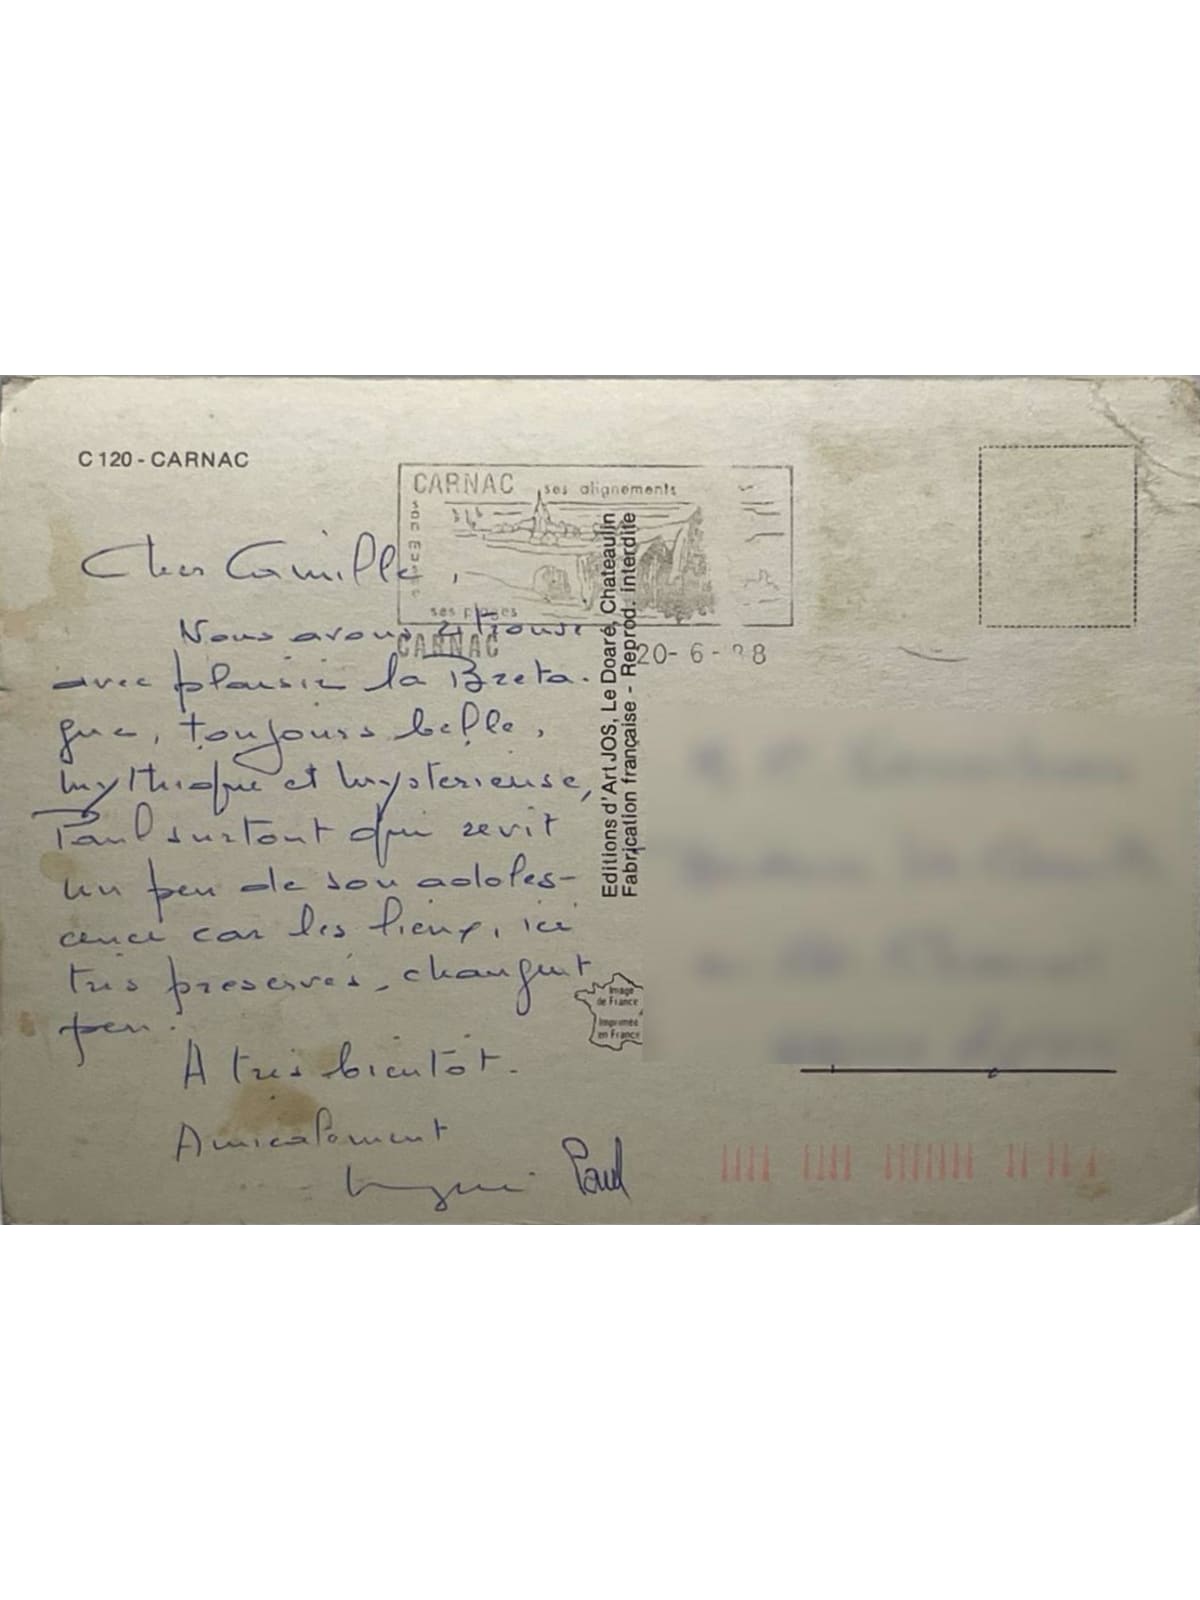 C 120 - CARNAC
CARNAC ses alignements
son musée
ses plages
CARNAC
20- 6 - 88
Cher Camille,
Nous avons retrouvé
avec plaisir la Breta-
gne, toujours belle,
mythique et mystérieuse,
Paul surtout qui revit
un peu de son adoles-
cence car les lieux, ici
très préservés, changent
peu.
A très bientôt.
Amicalement
Paul
Editions d'Art JOS, Le Doaré, Chateaulin
Fabrication française - Reprod. interdite
Image
de France
Imprimée
en France